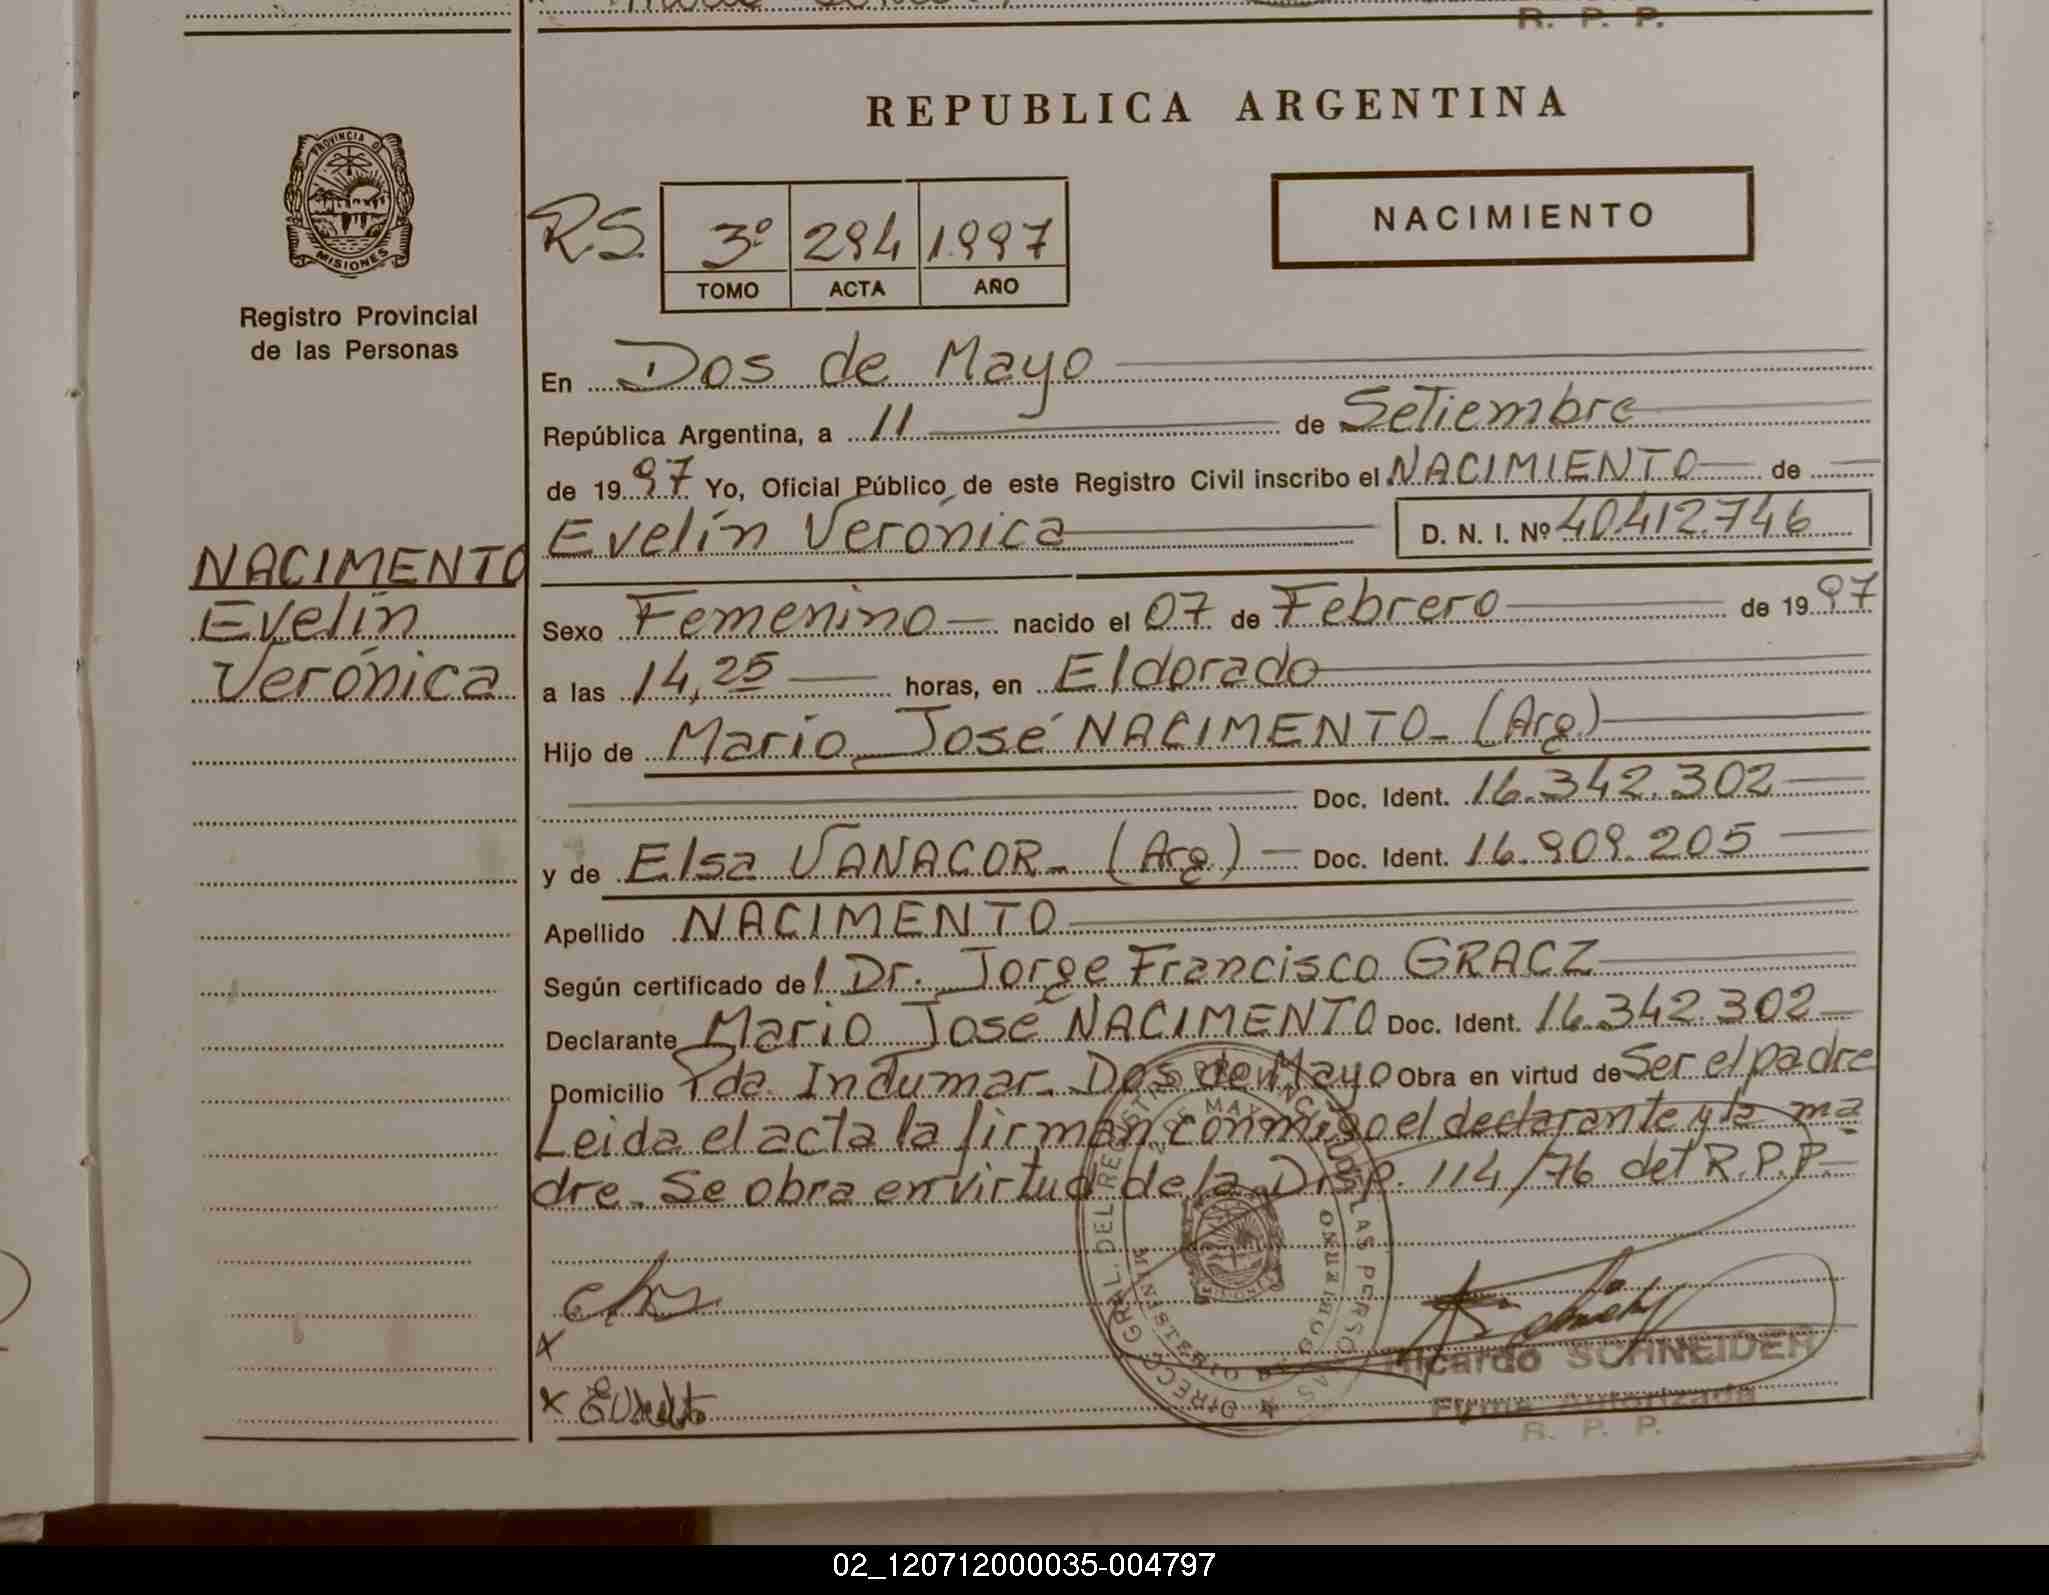 R. P. P.
REPUBLICA ARGENTINA
PROVINCIA D
MISIONES
Registro Provincial
de las Personas
R.S.
3º 294 1.997
TOMO ACTA AÑO
NACIMIENTO
En Dos de Mayo
República Argentina, a 11 de Setiembre
de 1997 Yo, Oficial Público de este Registro Civil inscribo el NACIMIENTO de
Evelín Verónica D. N. I. Nº 40.412.746
NACIMENTO
Evelín
Verónica
Sexo Femenino nacido el 07 de Febrero de 1997
a las 14,25 horas, en Eldorado
Hijo de Mario José NACIMENTO- (Arg.)
Doc. Ident. 16.342.302
y de Elsa VANACOR- (Arg.) Doc. Ident. 16.909.205
Apellido NACIMENTO
Según certificado del Dr. Jorge Francisco GRACZ
Declarante Mario José NACIMENTO Doc. Ident. 16.342.302
Domicilio Pda. Indumar- Dos de Mayo Obra en virtud de Ser el padre
Leida el acta la firman conmigo el declarante y la ma
dre. Se obra en virtud de la Disp. 114/76 del R.P.P.
MINISTERIO DE GOBIERNO
MISIONES
x
x
Ricardo SCHNEIDER
Firma Autorizada
R. P. P.
02_120712000035-004797